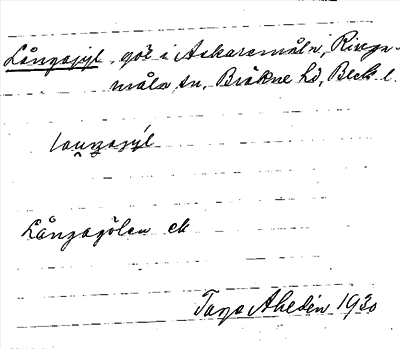 Långasjyl, göl i Askaremåla, Ringa-
måla sn, Bräkne hd, Blek. l.
laŋgajýl
Långagölen ek
Tage Ahedén 1930